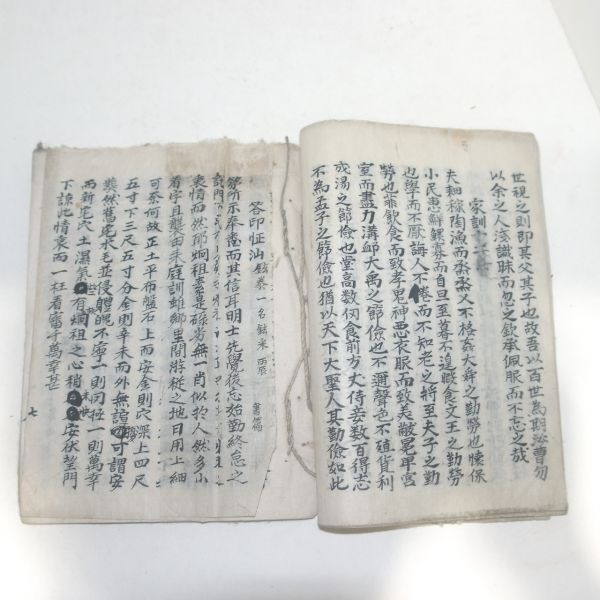 世視之則即其父其子也故吾以百世為期 曹勿
以余之人淺識昧而忽之欽承佩服而不忘之哉
家訓
夫耕稼陶漁而烝烝乂不格姦大舜之勤勞也懷保
小民惠鮮鰥寡而自旦至暮不遑暇食文王之勤勞
也學而不厭誨人不倦而不知老之將至夫子之勤
勞也菲飲食而致孝鬼神惡衣服而致美黻冕卑宮
室而盡力溝洫大禹之節儉也不邇聲色不殖貨利
成湯之節儉也堂高數仞食前方丈侍妾數百得志
不為孟子之節儉也猶以天下大聖人其勤儉如此
答印 汕 一名鉉 丙辰
所示奉悉而其信耳明士先覺後忘始勤終怠之
衷情而然耶炯祖素是碌劣無一肖似於人然多小
看字且襲由來庭訓雖鄉里間游從之地日用上細
可奈何故正土平布盤石上而安金則穴深上四尺
五寸下三尺五寸分金則辛未而外無 可謂安
然舊宅水毛並侵體魄不寧一則罔極一則萬幸
而新宅穴土濕氣 有炯祖之心稍 安伏望門
下諒此情衷而一枉看審千萬幸甚
七